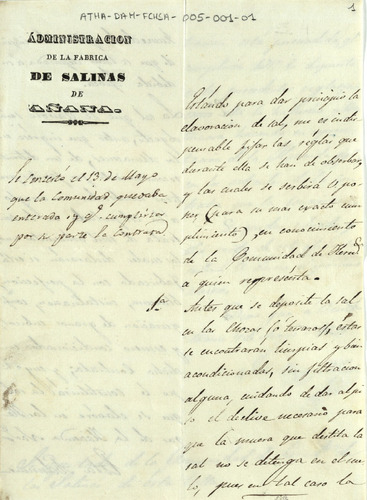 ATHA-DAH-FCHSA-005-001-01
1
ADMINISTRACION
DE LA FABRICA
DE SALINAS
DE
AÑANA.
Se contestó el 13 de Mayo
que la Comunidad quedaba
enterada y q.e cumpliria
por su parte la Contrata
Estando para dar principio la
elavoracion de sal, me es indis
pensable fijar las reglas que
durante ella se han de observar,
y las cuales se serbirá V. po
ner (para su mas exacto cum
plimiento), en conocimiento
de la Comunidad de
á quien representa.
1a
Antes que se deposite la sal
en las Chozas (ó terrazos), éstas
se encontrarán limpias y bien
acondicionadas, sin filtracion
alguna, cuidando de dar al pi
so el declive necesario para
que la muera que destila la
sal no se detenga en el sue
lo, pues en tal caso la